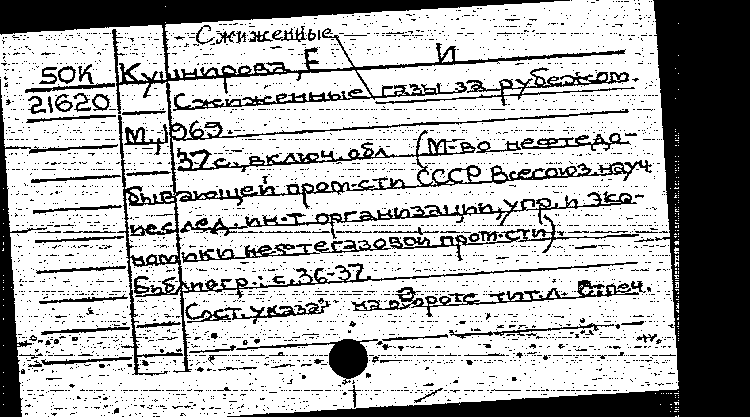 Сжиженные
50К Кушнирова, Е И
21620 Сжиженные газы за рубежом.
М., 1969.
37с., включ. обл. (М-во нефтедо-
бывающей пром-сти СССР Всесоюз. науч
исслед. ин-т организации, упр. и эко-
номики нефтегазовой пром-сти).
Библиогр.: с. 36-37.
Сост. указан на обороте тит. л. Отпеч.